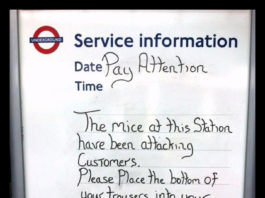 UNDERGROUND
Service information
Date Pay Attention
Time
The mice at this Station
have been attacking
Customers.
Please Place the bottom of
your trousers into your